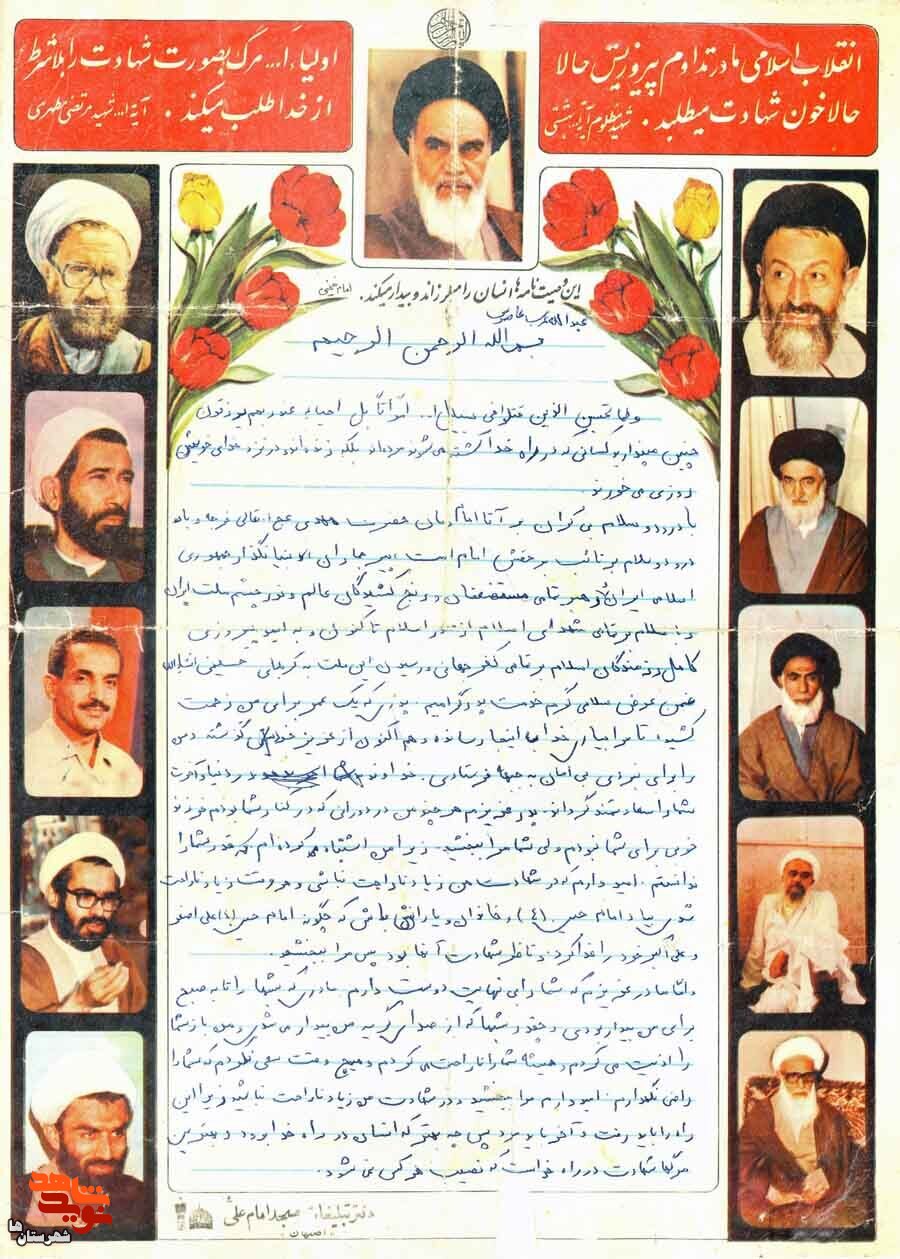 انقلاب اسلامی ما در تداوم پیروزیش حالا
حالا خون شهادت میطلبد. شهید مظلوم آیة... بهشتی
اولیاء ا... مرگ بصورت شهادت را بلاشرط
از خدا طلب میکند. آیة ا... شهید مرتضی مطهری
این وصیت نامه‌ها انسان را میلرزاند و بیدار میکند. امام خمینی
بسم الله الرحمن الرحیم
ولا تحسبن الذین قتلوا فی سبیل ا... امواتاً بل احیاء عند ربهم یرزقون
چنین مپندارید کسانی که در راه خدا کشته می‌شوند مرده‌اند بلکه زنده‌اند و در نزد خدای خویش
روزی می‌خورند.
با درود و سلام بی کران بر آقا امام زمان حضرت مهدی عج تعالی فرجه و با
درود و سلام بر نائب بر حقش امام امت پیر جماران بنیانگذار جمهوری
اسلامی ایران و رهبر تمامی مستضعفان و رنج کشیدگان عالم و نور چشم ملت ایران
و با سلام بر تمامی شهدای اسلام از صدر اسلام تا کنون و به امید پیروزی
کامل رزمندگان اسلام بر تمامی کفر جهانی و رسیدن این ملت به کربلای حسینی انشاءالله
ضمن عرض سلامی گرم خدمت پدر گرامیم. پدری که یک عمر برای من زحمت
کشید تا مرا بیاری خدا به اینجا رسانده و هم اکنون از عزیز خود گذشته و من
را برای نبردی بی امان به جبهه فرستادی. خداوند شما در دنیا و آخرت
شما را سعادتمند گرداند. پدر عزیزم هر چند من در دورانی که در کنار شما بودم فرزند
خوبی برای شما نبودم ولی شما مرا ببخشید. زیرا من اشتباه کرده‌ام که قدر شما را
ندانستم. امیدوارم که در شهادت من زیاد ناراحت نباشی و هر وقت زیاد ناراحت
شدی بیاد امام حسین (ع) و خاندان و یارانش باش که چگونه امام حسین (ع) علی اصغر
و علی اکبر خود را فدا کرد و ناظر شهادت آنها بود پس مرا ببخشید.
و امّا مادر عزیزم که شما را بی نهایت دوست دارم. مادری که شبها را تا به صبح
برای من بیدار بودی و چقدر شبها که از صدای گریه من بیدار می‌شدی و من باز شما
را اذیت می‌کردم و همیشه شما را ناراحت می‌کردم و هیچ وقت سعی نکردم که شما را
راضی نگهدارم. امیدوارم مرا ببخشید و در شهادت من زیاد ناراحت نباشید زیرا این
راه را باید رفت و آخر باید مرد پس چه بهتر که انسان در راه خدا بمیرد و بهترین
مرگها شهادت در راه خداست که نصیب هر کسی نمی شود.
دفتر تبلیغات مسجد امام علی
اصفهان
نوید شاهد
شهرستان ها